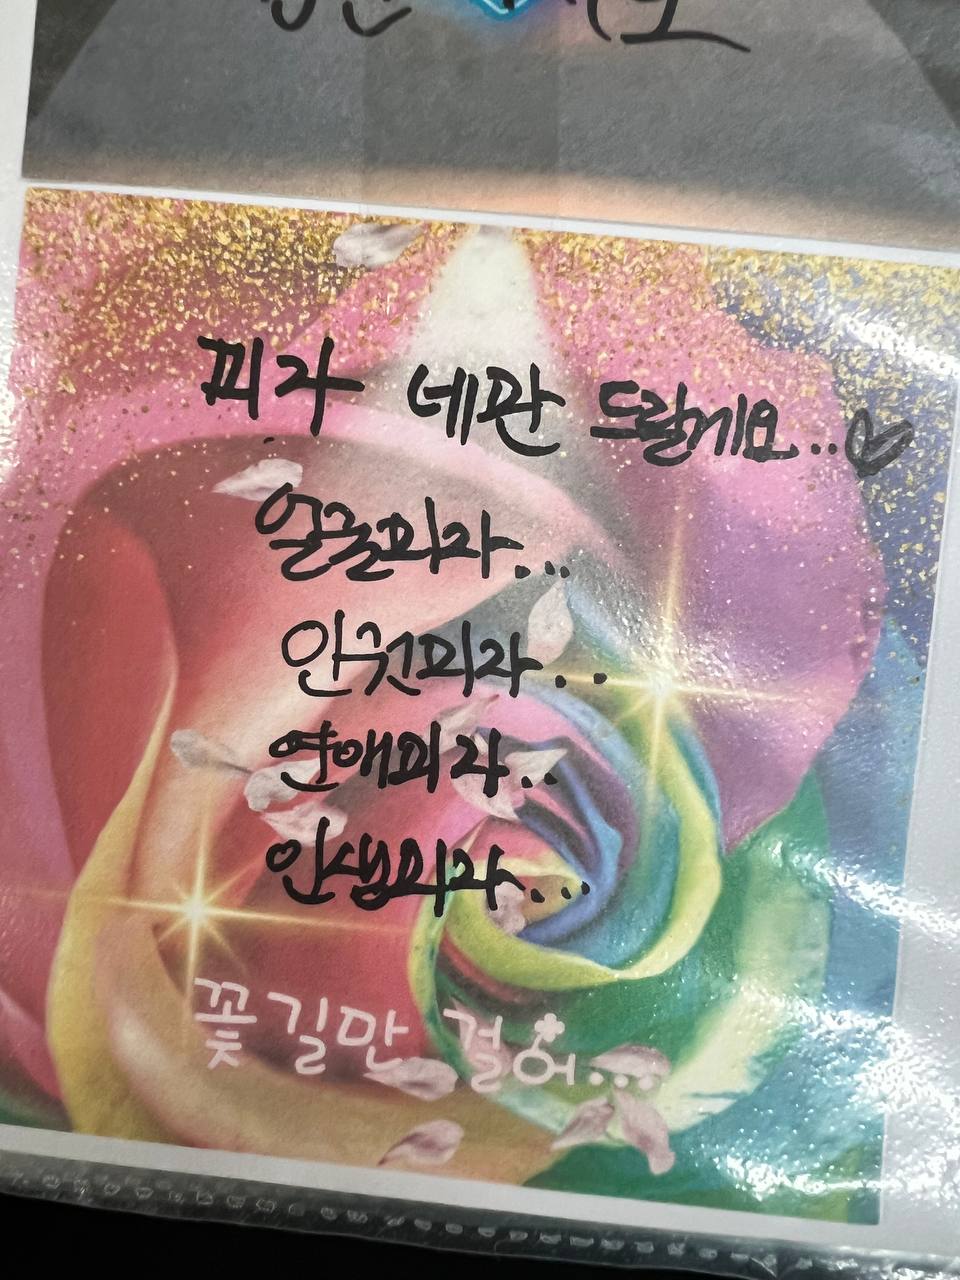 피자 네판 드랄게요..♡
얼굴피자...
안건피자..
연애피자..
인생피자...
꽃길만 걸어...